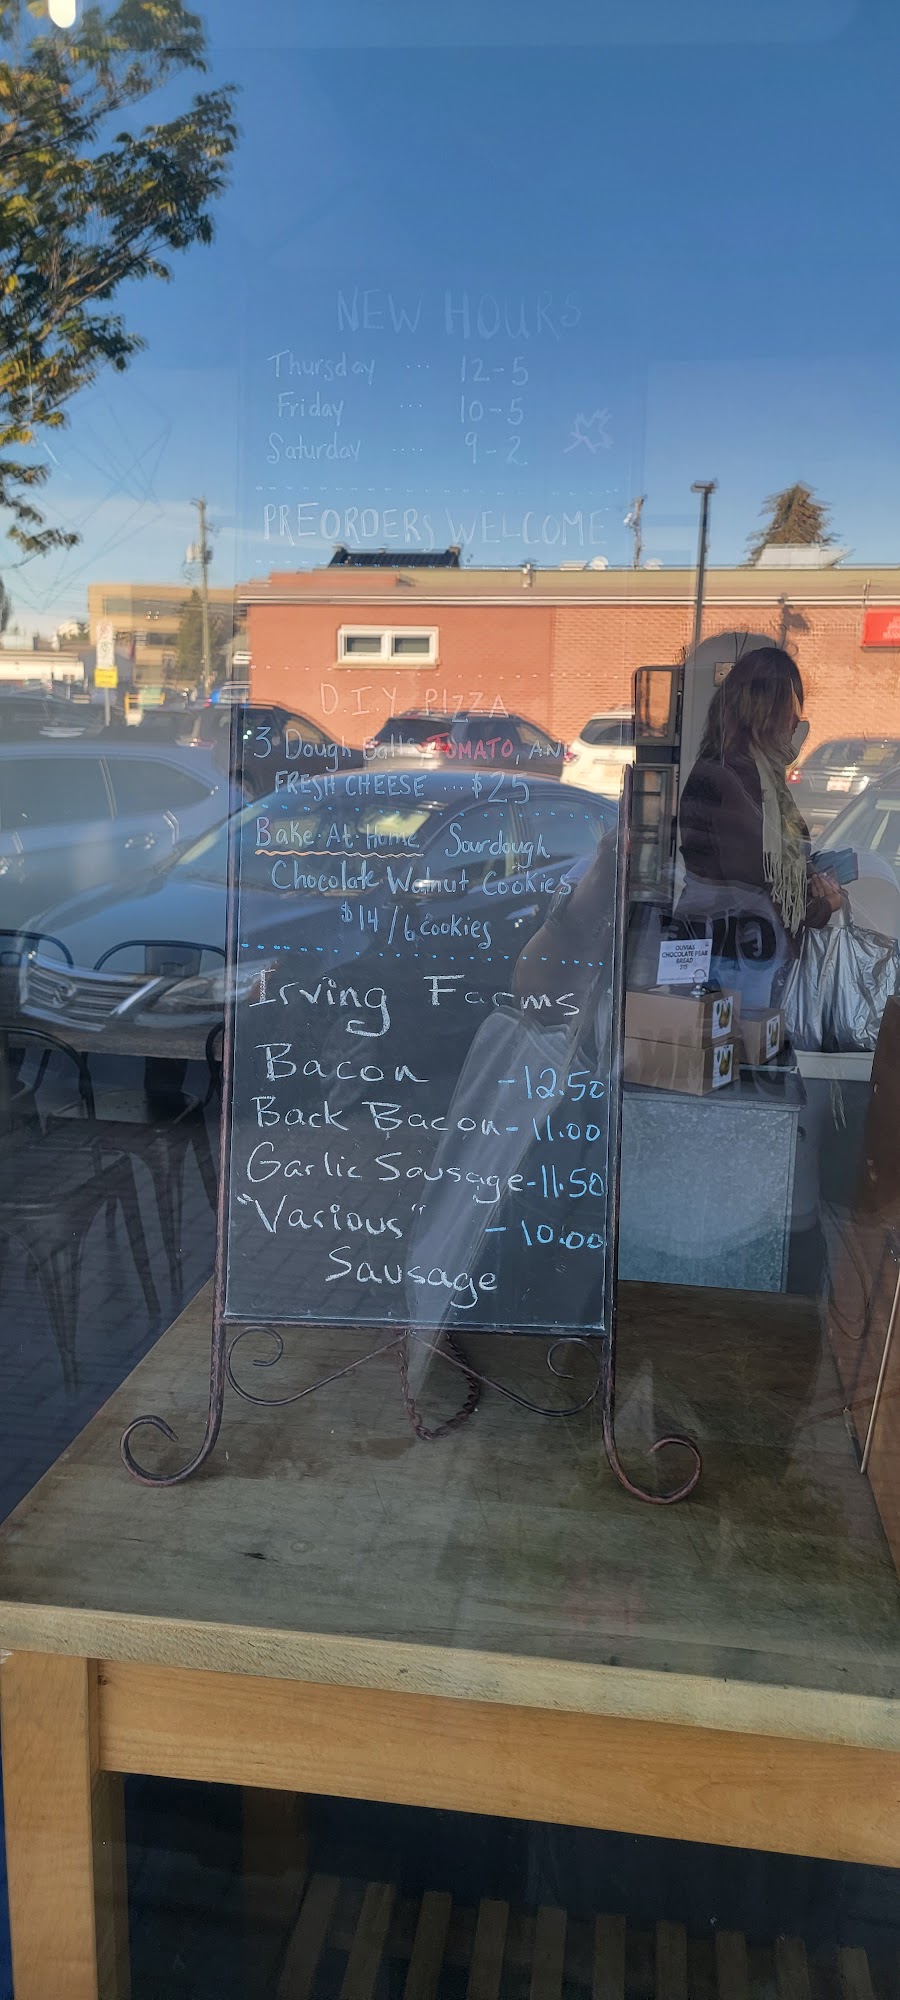 NEW HOURS
Thursday ... 12-5
Friday ... 10-5
Saturday .... 9-2
PREORDERS WELCOME
D.I.Y. PIZZA
3 Dough Balls, TOMATO, AND
FRESH CHEESE ... $25
Bake-At-Home Sourdough
Chocolate Walnut Cookies
$14/6 cookies
Irving Farms
Bacon -12.50
Back Bacon - 11.00
Garlic Sausage -11.50
"Various" - 10.00
Sausage
OLIVIAS
CHOCOLATE PEAR
BREAD